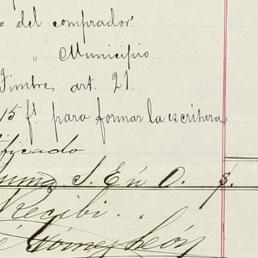 o del comprador.
" Municipio
Timbres art. 21.
15 f. para formar la escritura
ificado
Suma S. E ú O. $.
Recibí.
Gómez León